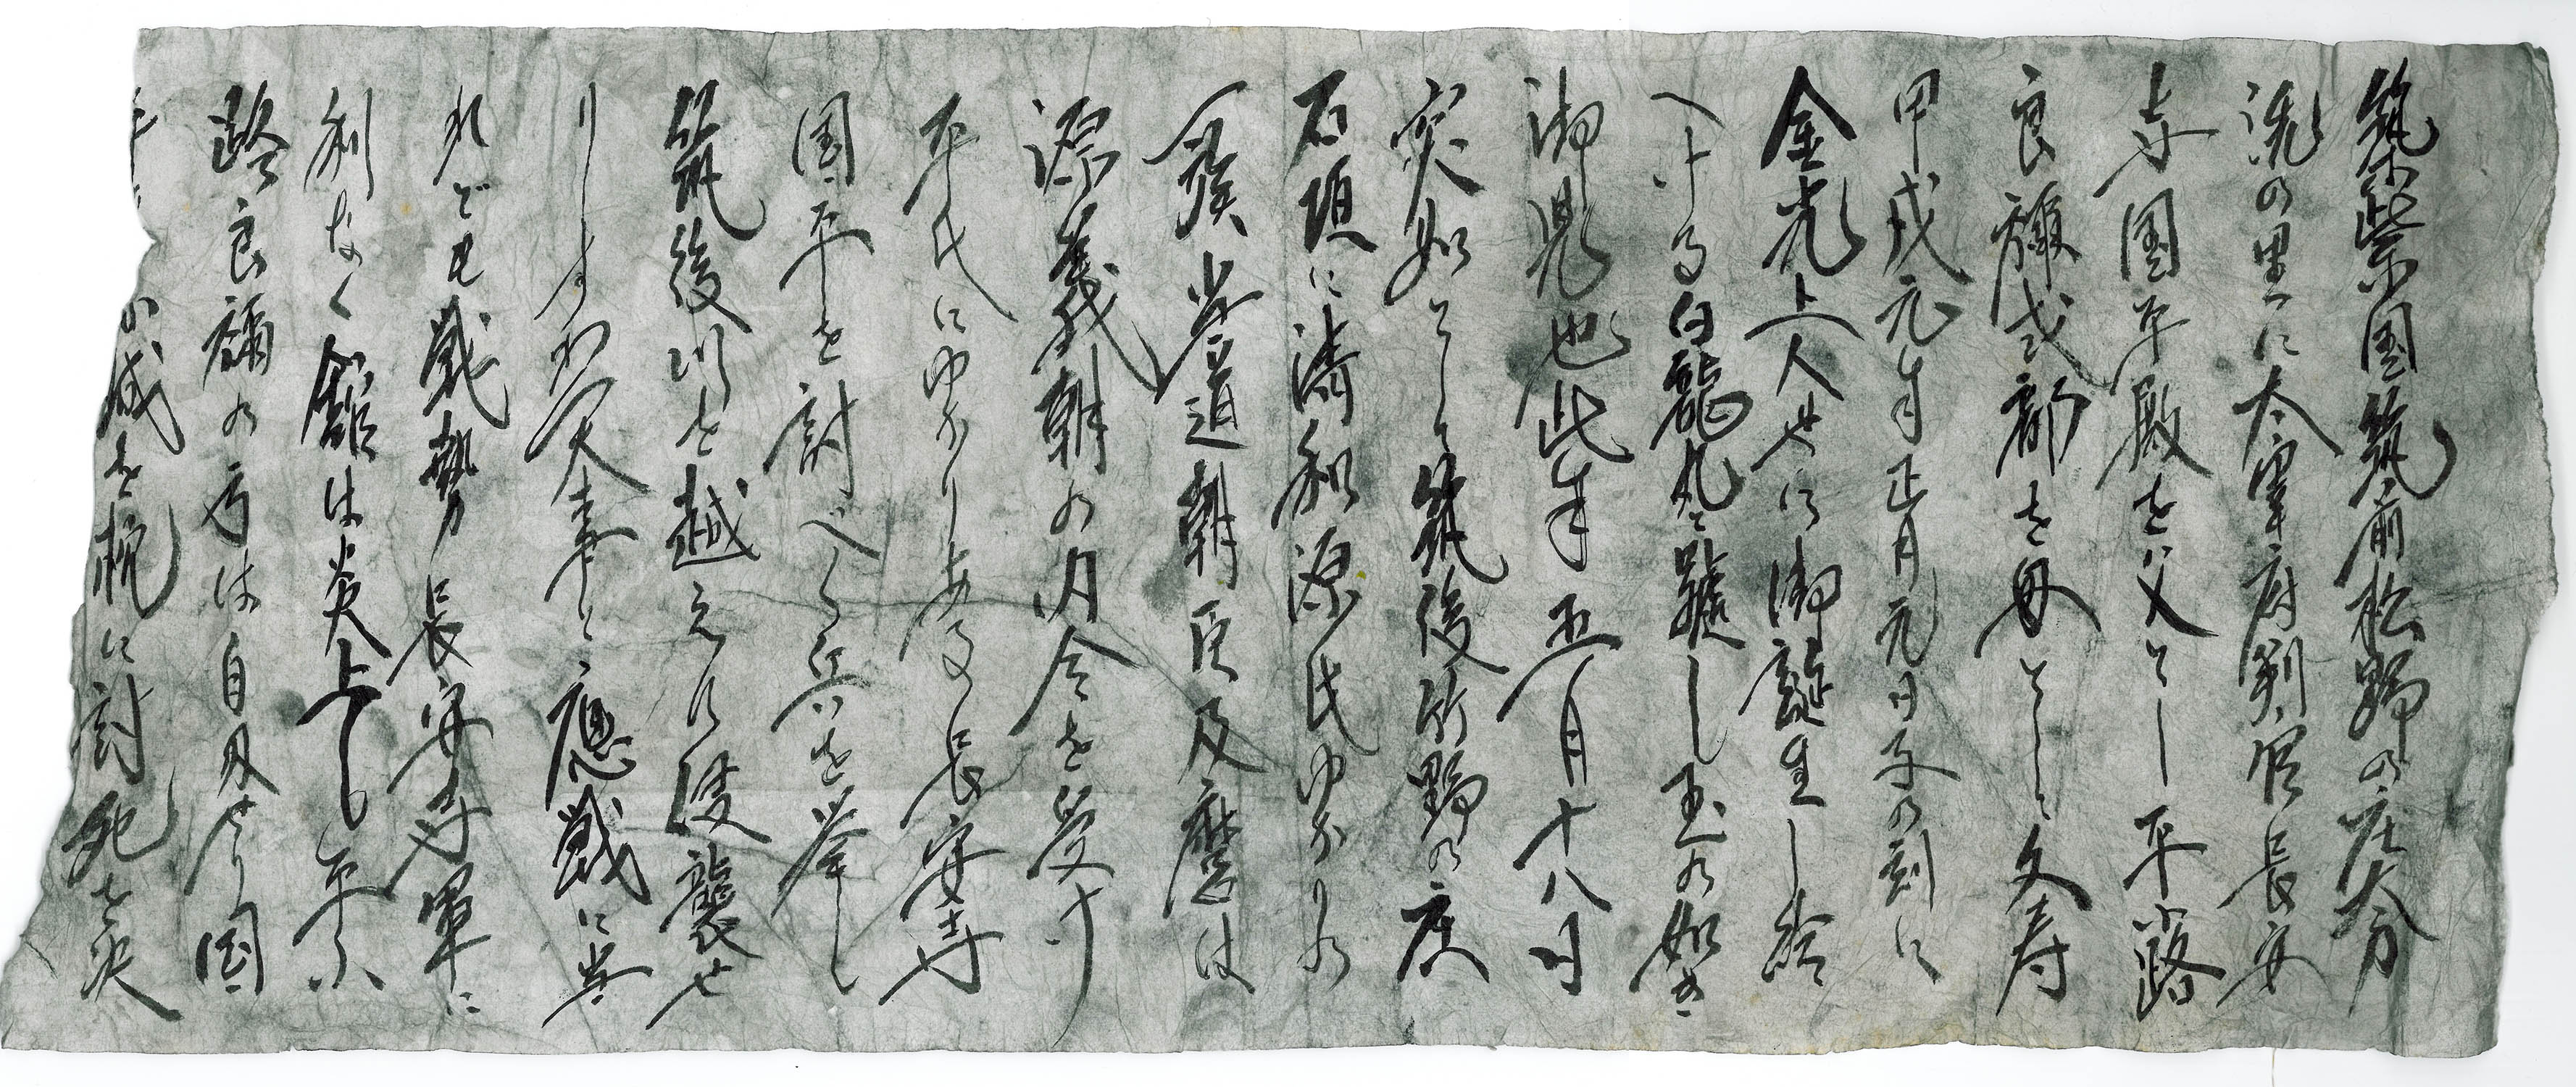 筑紫国筑前松野の庄大力
洗の里に太宰府判官長安
寺国平殿を父とし平路
良禰式部を母として文寿
甲戌元年正月元日子の刻に
金光上人世に御誕生し給
へける白龍丸と號し玉の如き
御児也此年五月十八日
突如として筑後竹野の庄
石垣に清和源氏ゆかりの
發堂道朝臣及麿は
源義朝の内令を受け
平氏にゆかりある長安寺
国平を討べく兵を挙し
筑後川を越えに侵襲せ
りしすわ大事と應戦に
れども戦勢長安寺軍に
利なく館は炎上し平
路良禰の方は自刃せり国
城を枕に討死を決